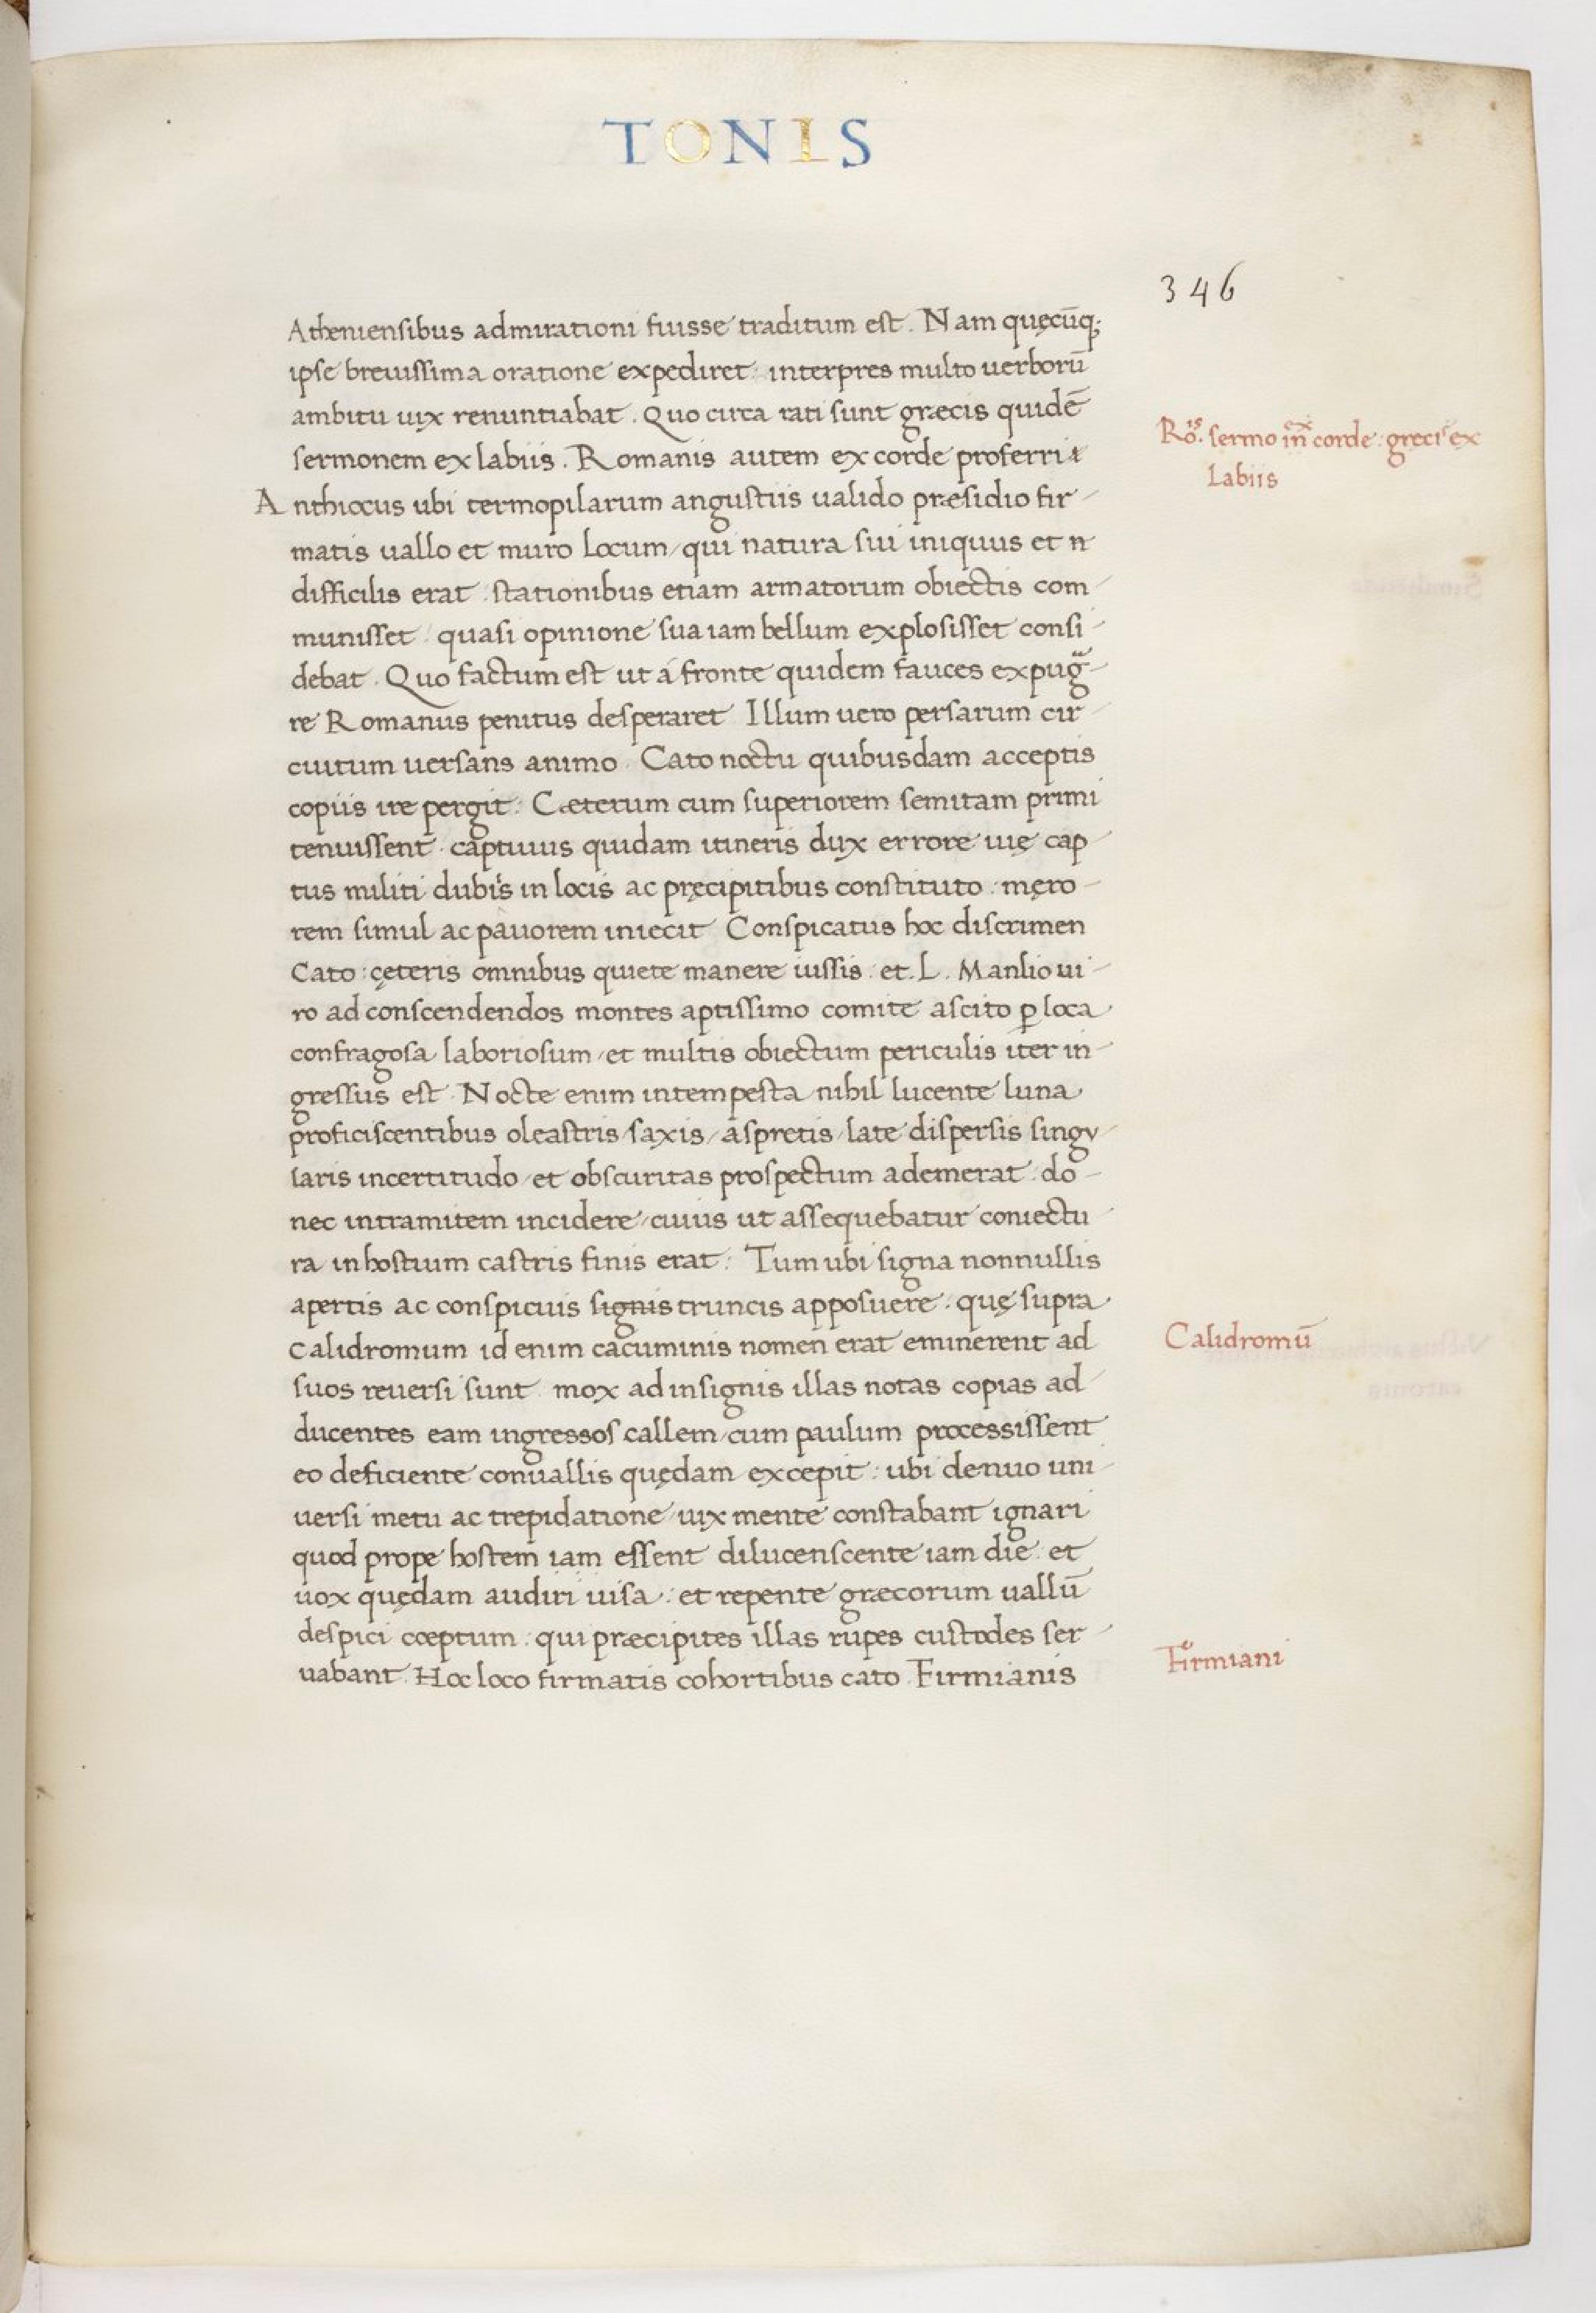 TONIS
346
Atheniensibus admirationi fuisse traditum est. Nam quęcūq;
ipse breuissima oratione expediret: interpres multo uerborū
ambitu uix renuntiabat. Quo circa rati sunt græcis quidē
sermonem ex labiis. Romanis autem ex corde proferri
Rō.is sermo in ex corde: grecis ex
Labiis
Anthiocus ubi termopilarum angustiis ualido præsidio fir-
matis uallo et muro locum, qui natura sui iniquus et
difficilis erat: stationibus etiam armatorum obiectis com-
munisset: quasi opinione sua iam bellum explosisset consi-
debat. Quo factum est ut á fronte quidem fauces expugᵃ-
re Romanus penitus desperaret Illum uero persarum cir-
cuitum uersans animo. Cato noctu quibusdam acceptis
copiis ire pergit: Cæterum cum superiorem semitam primi
tenuissent. captiuus quidam itineris dux errore uię cap-
tus militi dubiis in locis ac pręcipitibus constituto: męro-
rem simul ac pauorem iniecit Conspicatus hoc discrimen
Cato: çęteris omnibus quiete manere iussis: et. L. Manlio ui-
ro ad conscendendos montes aptissimo comite ascito ꝑ loca
confragosa laboriosum, et multis obiectum periculis iter in-
gressus est. Nocte enim intempesta nihil lucente luna
proficiscentibus oleastris, saxis, aspretis, late dispersis singv-
laris incertitudo, et obscuritas prospectum ademerat: do-
nec intramitem incidere, cuius ut assequebatur coniectu-
ra in hostium castris finis erat: Tum ubi signa nonnullis
apertis ac conspicuis signis truncis apposuere: quę supra
Calidromum id enim cacuminis nomen erat eminerent ad
Calidromū
suos reuersi sunt. mox ad insignis illas notas copias ad-
ducentes eam ingressos callem, cum paulum processissent
eo deficiente conuallis quędam excepit: ubi denuo uni-
uersi metu ac trepidatione, uix mente constabant ignari
quod prope hostem iam essent dilucenscente iam die: et
uox quędam audiri uisa: et repente græcorum uallū
despici cœptum: qui præcipites illas rupes custodes ser-
uabant. Hoc loco firmatis cohortibus cato. Firmianis
Firmiani